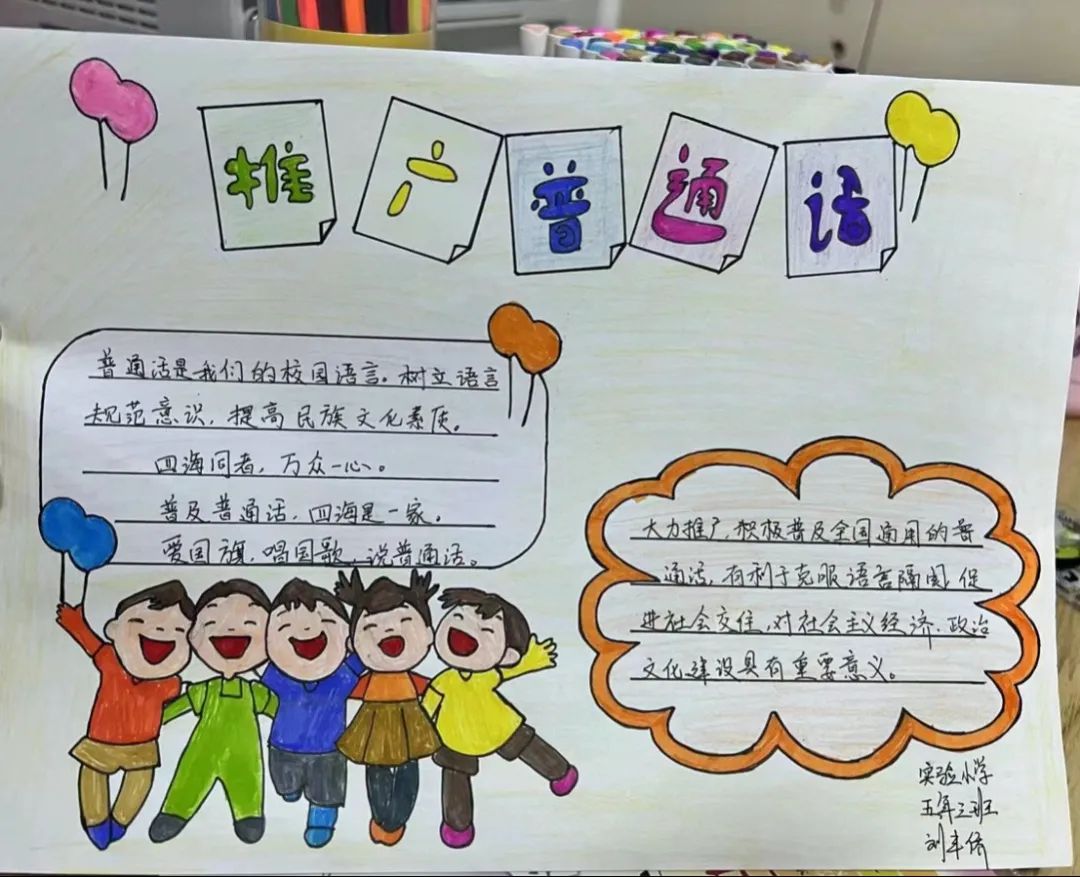 推广普通话
普通话是我们的校园语言。树立语言
规范意识,提高民族文化素质。
四海同音,万众一心。
普及普通话,四海是一家。
爱国旗,唱国歌,说普通话。
大力推广,积极普及全国通用的普
通话,有利于克服语言隔阂,促
进社会交往,对社会主义经济、政治
文化建设具有重要意义。
实验小学
五年三班